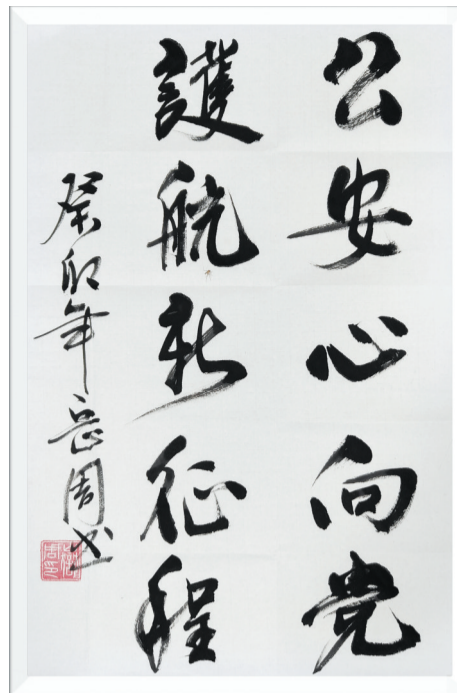 公安心向党
護航新征程
癸卯年岳周书